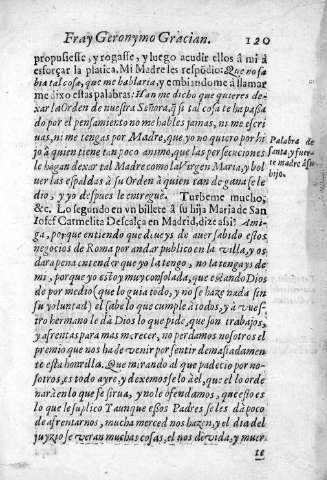 Fray Geronymo Gracian. 120
propusiesse, y rogasse, y luego acudir ellos â mi â
esforçar la platica. Mi Madre les respõdio: Que no sa
bia tal cosa, que me hablaria, y embiandome â llamar
me dixo estas palabras: Han me dicho que quieres de-
xar la Orden de nuestra Señora, q̃ si tal cosa te ha pasa
do por el pensamiento no me hables jamas, ni me escri
uas, ni me tengas por Madre, que yo no quiero por hi
jo â quien tiene tan poco animo, que las persecuciones
le hagan dexar tal Madre como la Virgen Maria, y bol
uer las espaldas â su Orden â quien tan de gana se le
dio, y yo despues le entreguè. Turbeme mucho,
&c. Lo segundo en vn billete â su hija Maria de San
Iosef Carmelita Descalça en Madrid, dize assi: Ami-
ga, porque entiendo que deueys de auer sabido estos
negocios de Roma por andar publico en la villa, y os
dara pena entender que yo la tengo, no la tengays de
mi, porque yo estoy muy consolada, que estando Dios
de por medio (que lo guia todo, y no se haze nada sin
su voluntad) el sabe lo que cumple â todos, y â vues-
tro hermano le dâ Dios lo que pide, que son trabajos,
y afrentas para mas merecer, no perdamos nosotros el
premio que nos ha de venir por sentir demasiadamen
te esta honrilla. Que mirando al que padecio por no-
sotros, es todo ayre, y dexemoselo â el, que el lo orde
narà en lo que se sirua, y no le ofendamos, que esto es
lo que le suplico Y aunque essos Padres se les dà poco
de afrentarnos, mucha merced nos hazen, y el dia del
juyzio se veran muchas cosas, el nos dè vida, y muer
te
Palabra de
santa, y fuer-
te madre â su
hijo.